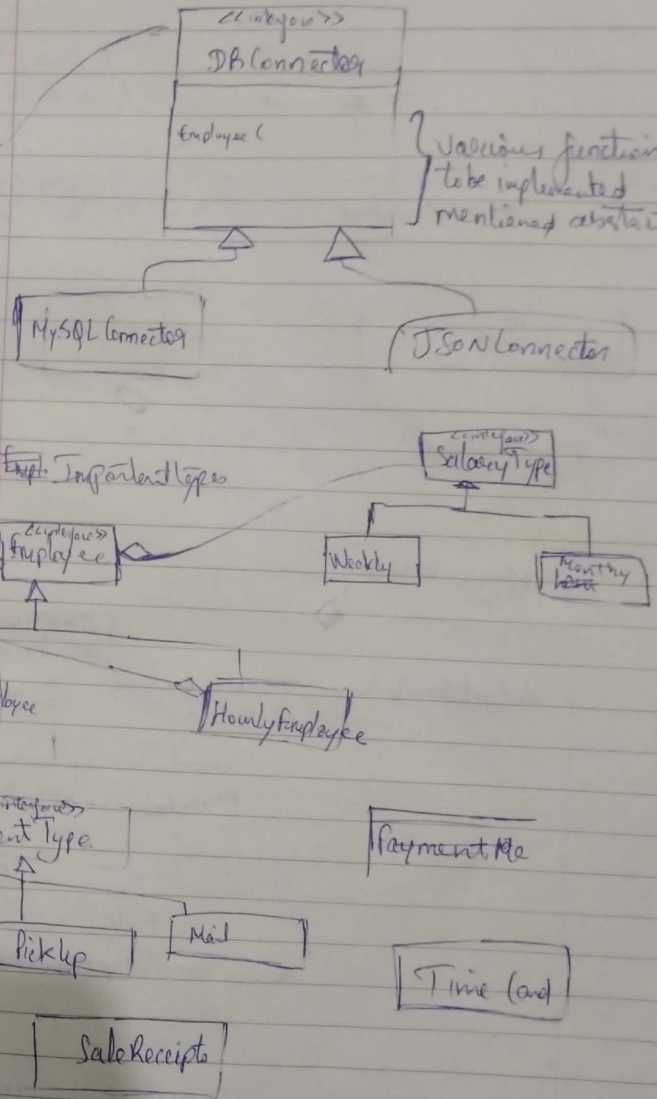 <<interface>>
DBConnector
Employee (
various function
to be implemented
mentioned
MySQL Connector
JSON Connector
Important types
<<interface>>
Salary Type
<<interface>>
Employee
Weekly
Monthly
loyee
HourlyEmployee
interface>>
ent Type
Payment Me
PickUp
Mail
Time Card
SaleReceipts